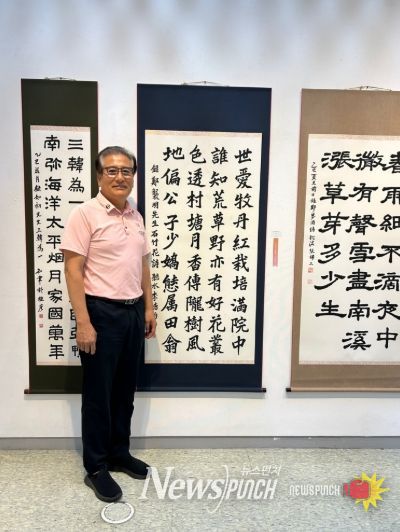 三韓為一
南弥海洋太平烟月家國萬年
世愛牡丹紅栽培滿院中
誰知荒草野亦有好花叢
色透村塘月香傳隴樹風
地偏公子少嬌態属田翁
鄭襲明先生石竹花詩
雨細不滴夜中
微有聲雪盡南溪
漲草芽多少生
뉴스펀치
NEWSPUNCH
NEWSPUNCH